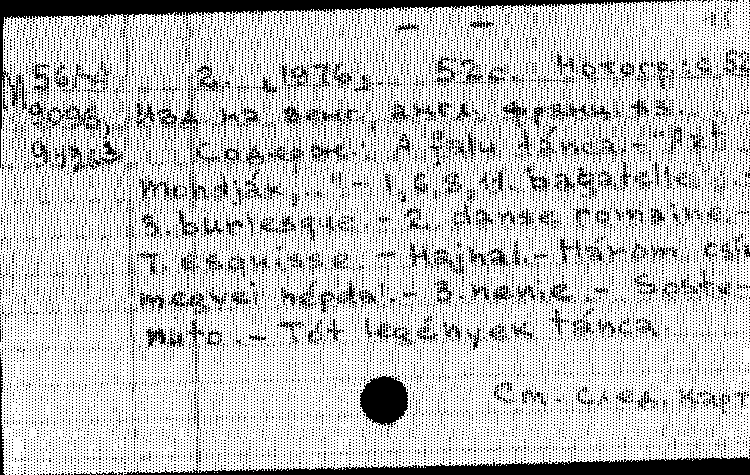 2. , 1976,. 52 с. Нотогр.
9096, Изд. на венг., англ., франц. яз.
Содерж.: A falu tánca.- "Azt
mondják,..." - 1,6,8,14. bagatelle.-
3. burlesque.- 2. danse romaine.-
7. esquisse.- Hajnal.- Három csík
megyei népdal.- 3. nenie.- Soste-
nuto.- Tót legények tánca.
См. след. карт